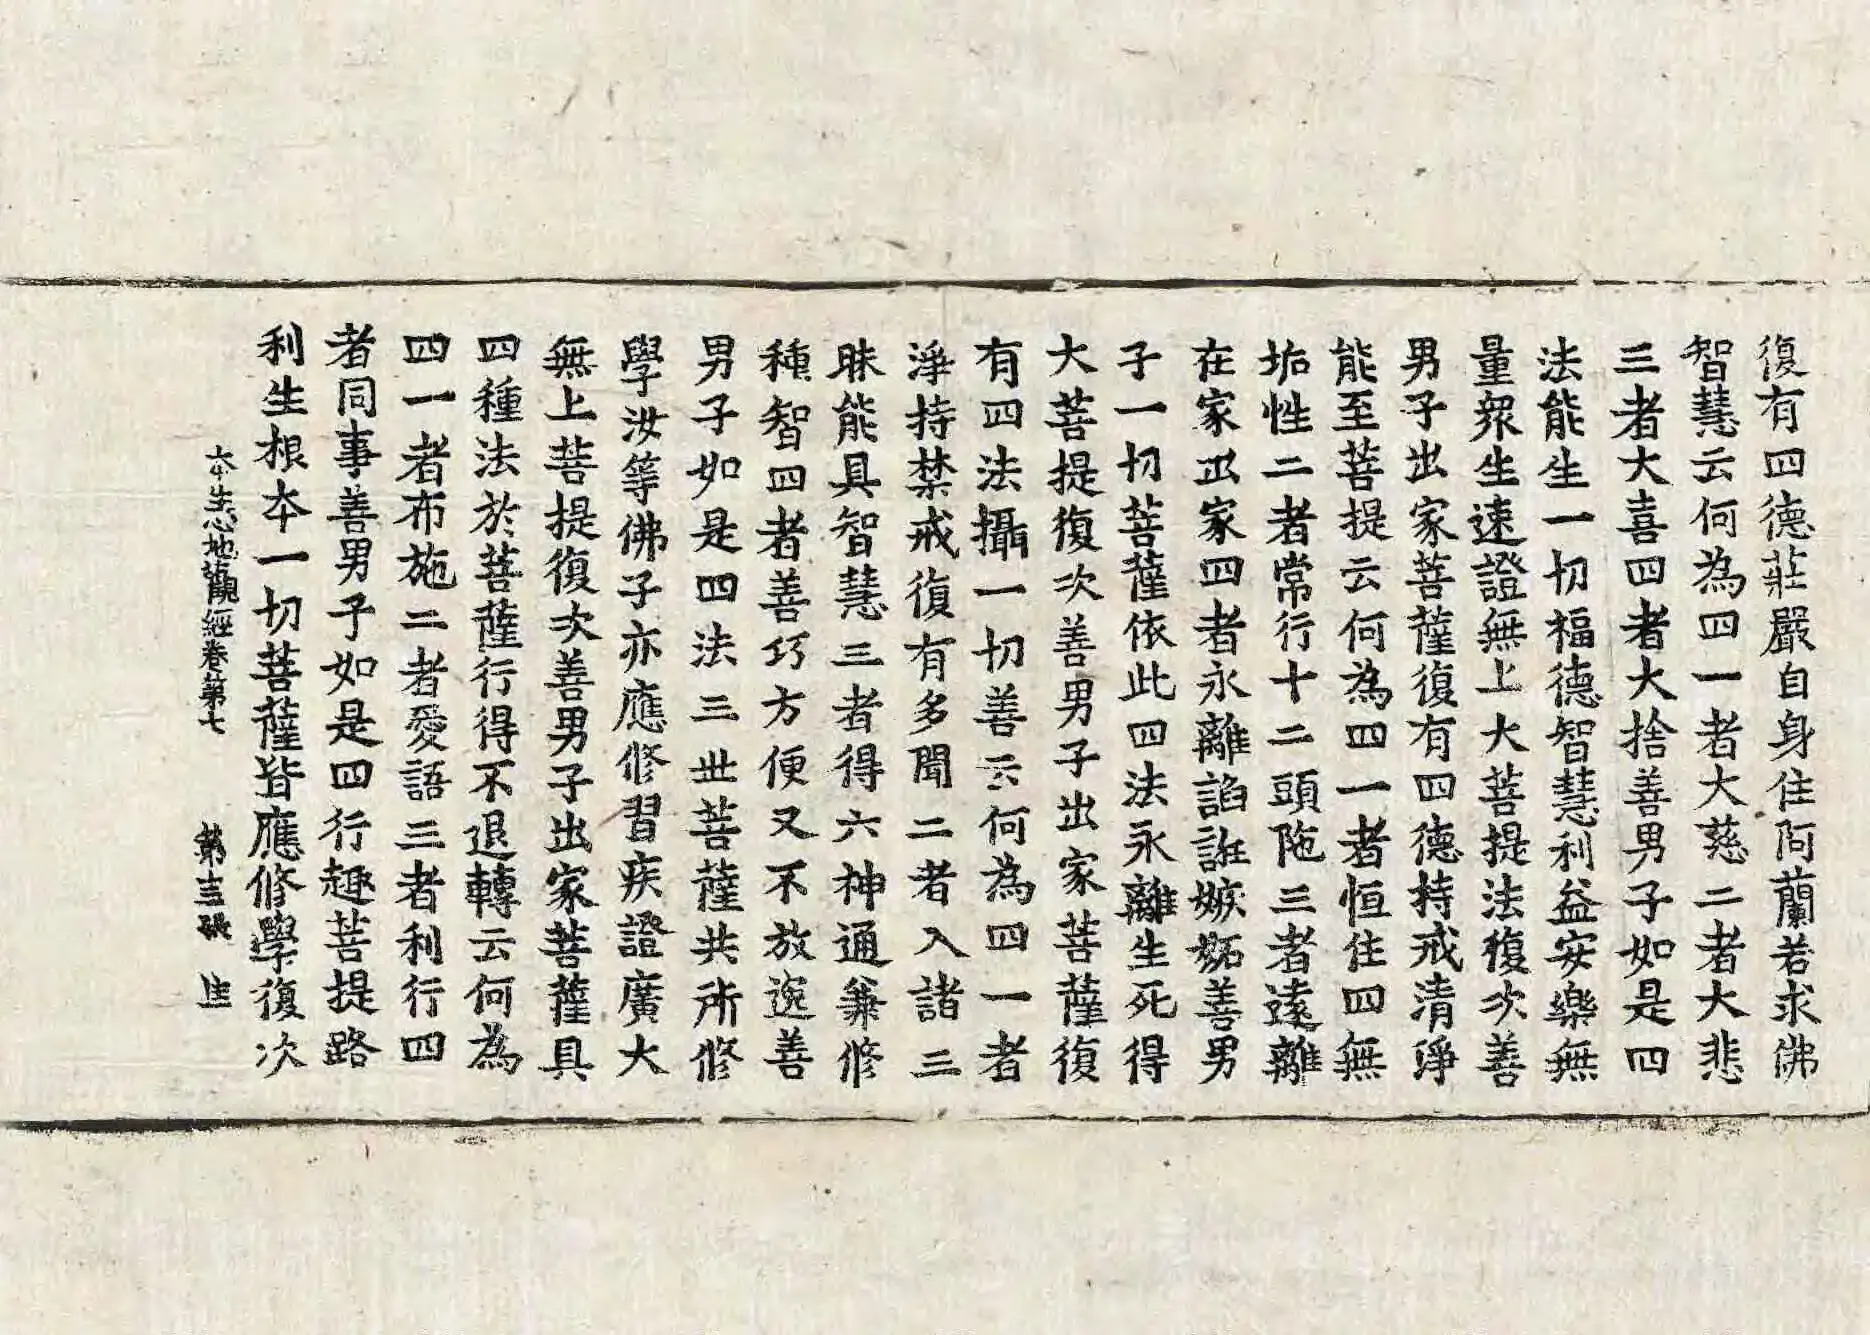 復有四德莊嚴自身住阿蘭若求佛
智慧云何為四一者大慈二者大悲
三者大喜四者大捨善男子如是四
法能生一切福德智慧利益安樂無
量眾生速證無上大菩提法復次善
男子出家菩薩復有四德持戒清淨
能至菩提云何為四一者恒住四無
垢性二者常行十二頭陁三者遠離
在家出家四者永離諂誑嫉妬善男
子一切菩薩依此四法永離生死得
大菩提復次善男子出家菩薩復
有四法攝一切善云何為四一者
淨持禁戒復有多聞二者入諸三
昧能具智慧三者得六神通兼修
種智四者善巧方便又不放逸善
男子如是四法三世菩薩共所修
學汝等佛子亦應修習疾證廣大
無上菩提復次善男子出家菩薩具
四種法於菩薩行得不退轉云何為
四一者布施二者愛語三者利行四
者同事善男子如是四行趣菩提路
利生根本一切菩薩皆應修學復次
本生心地觀經卷第七 第十三張